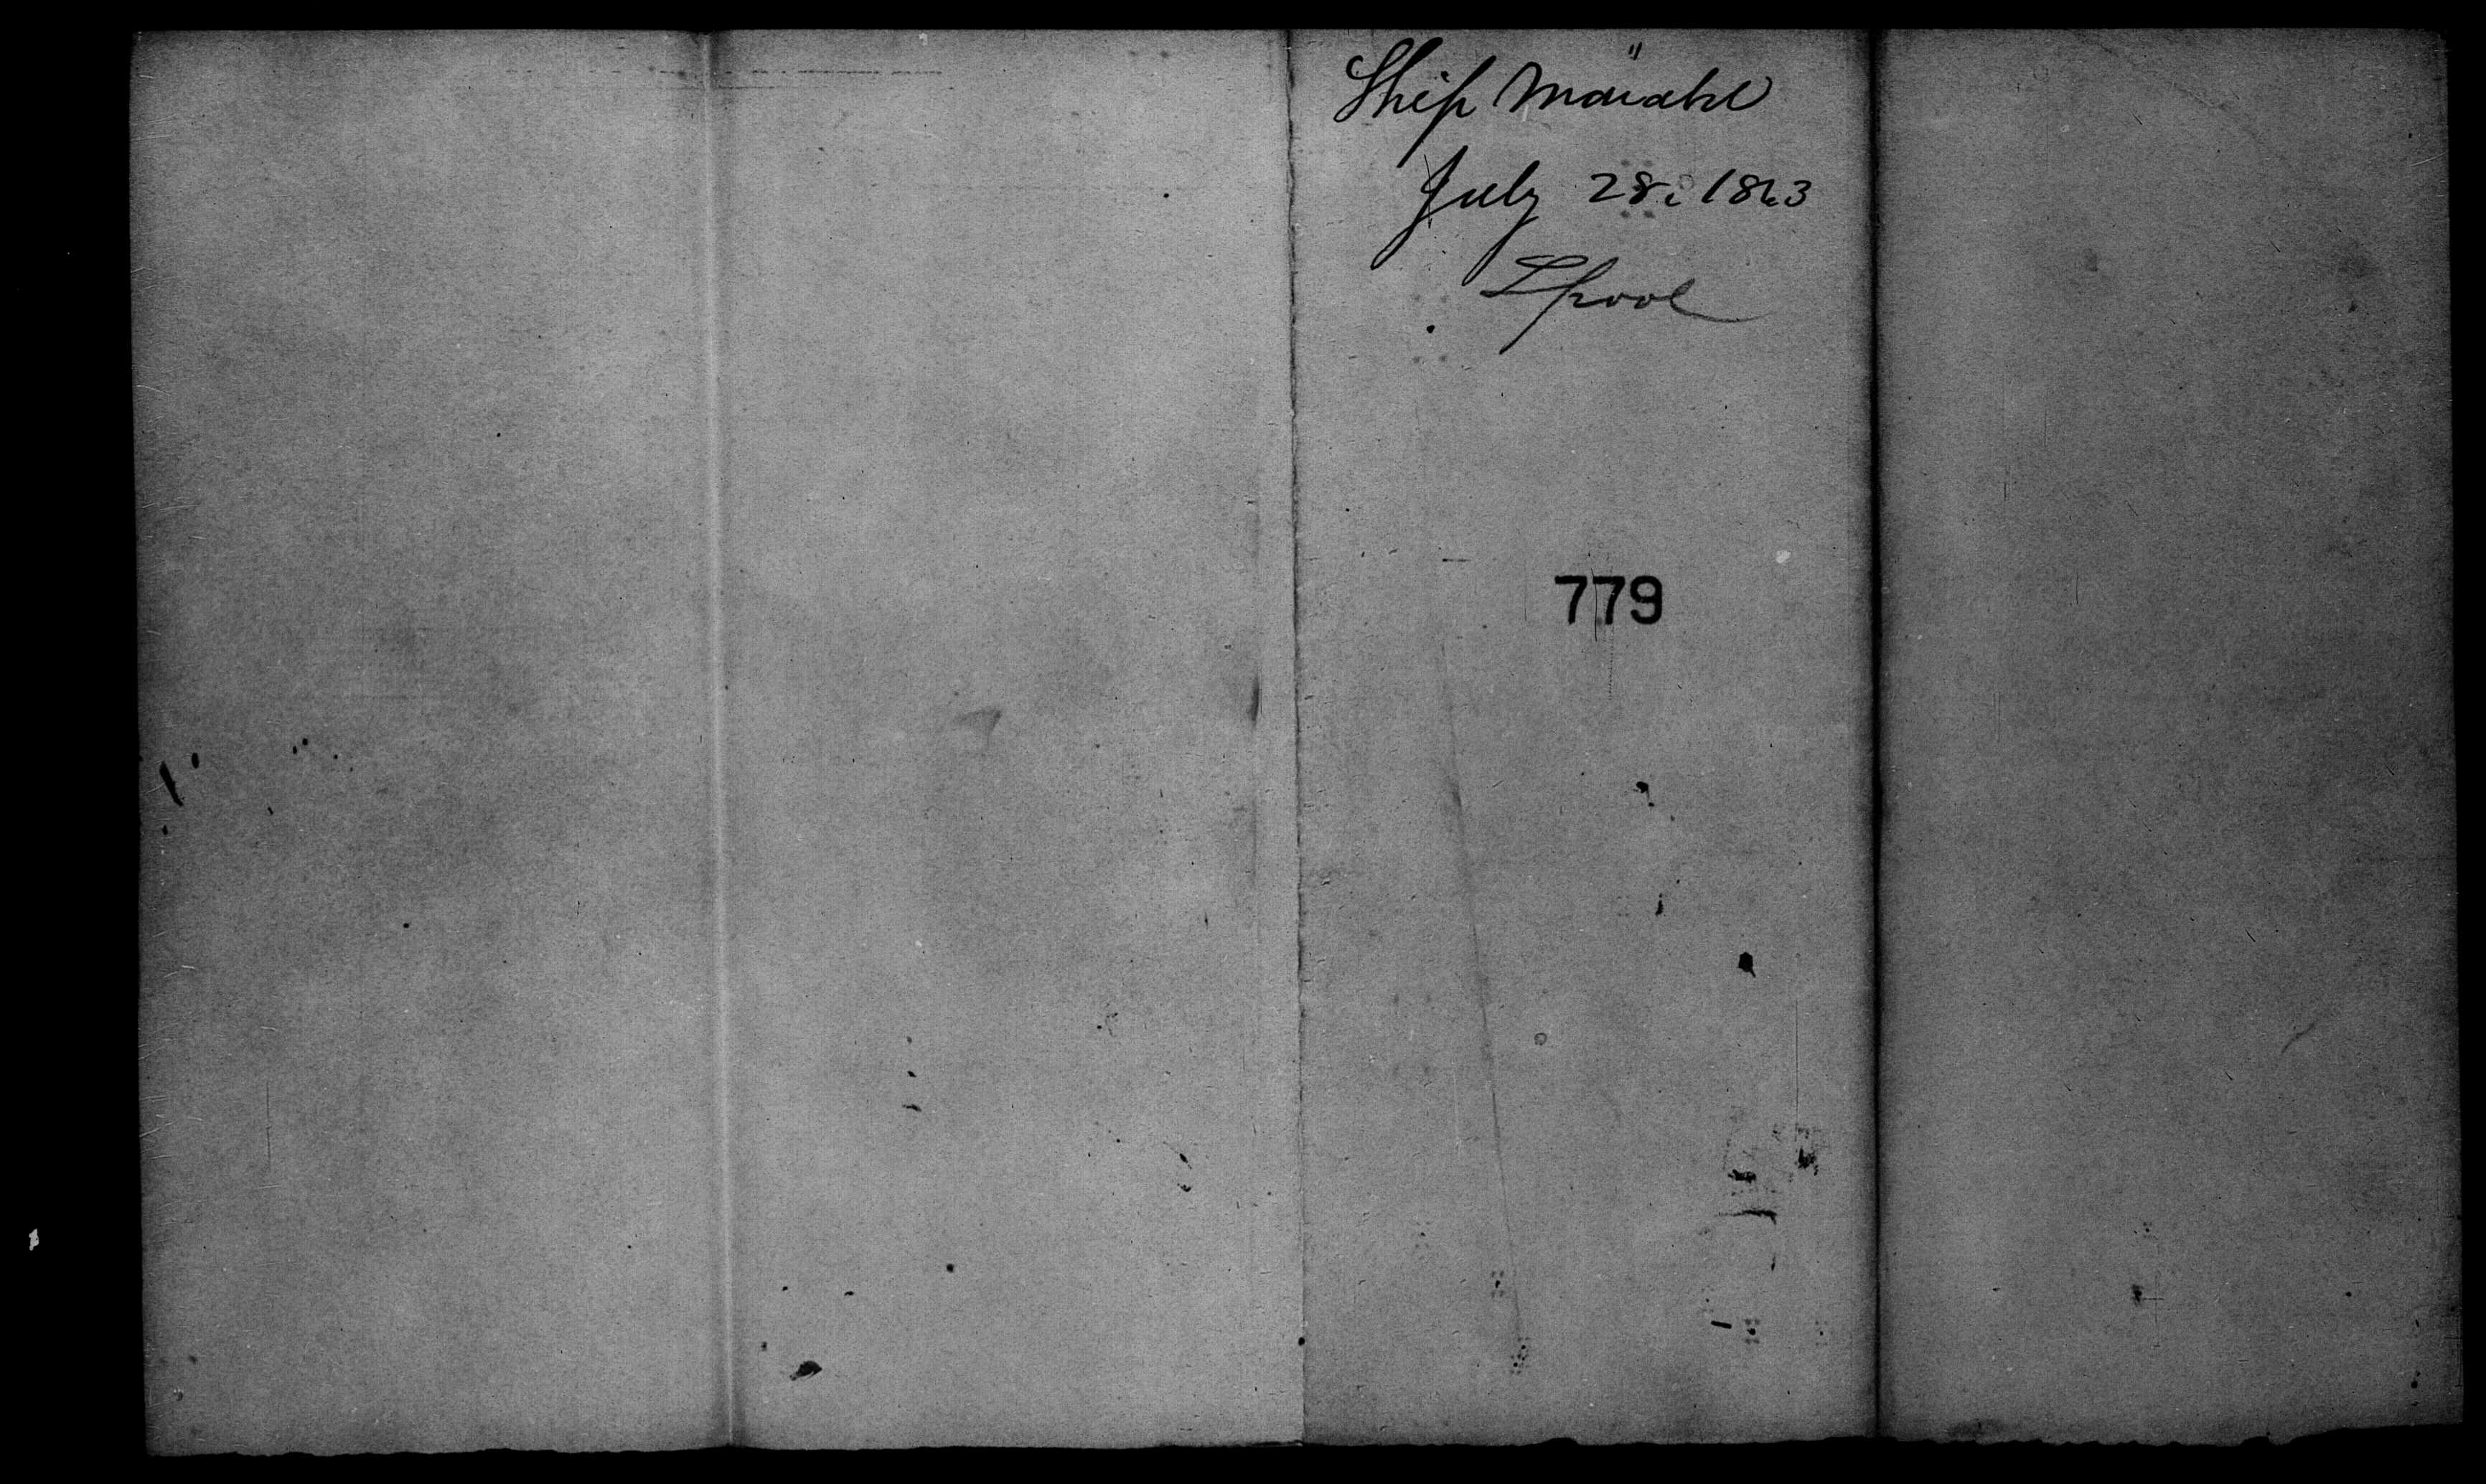 Ship
July 28. 1863
Lpool
779